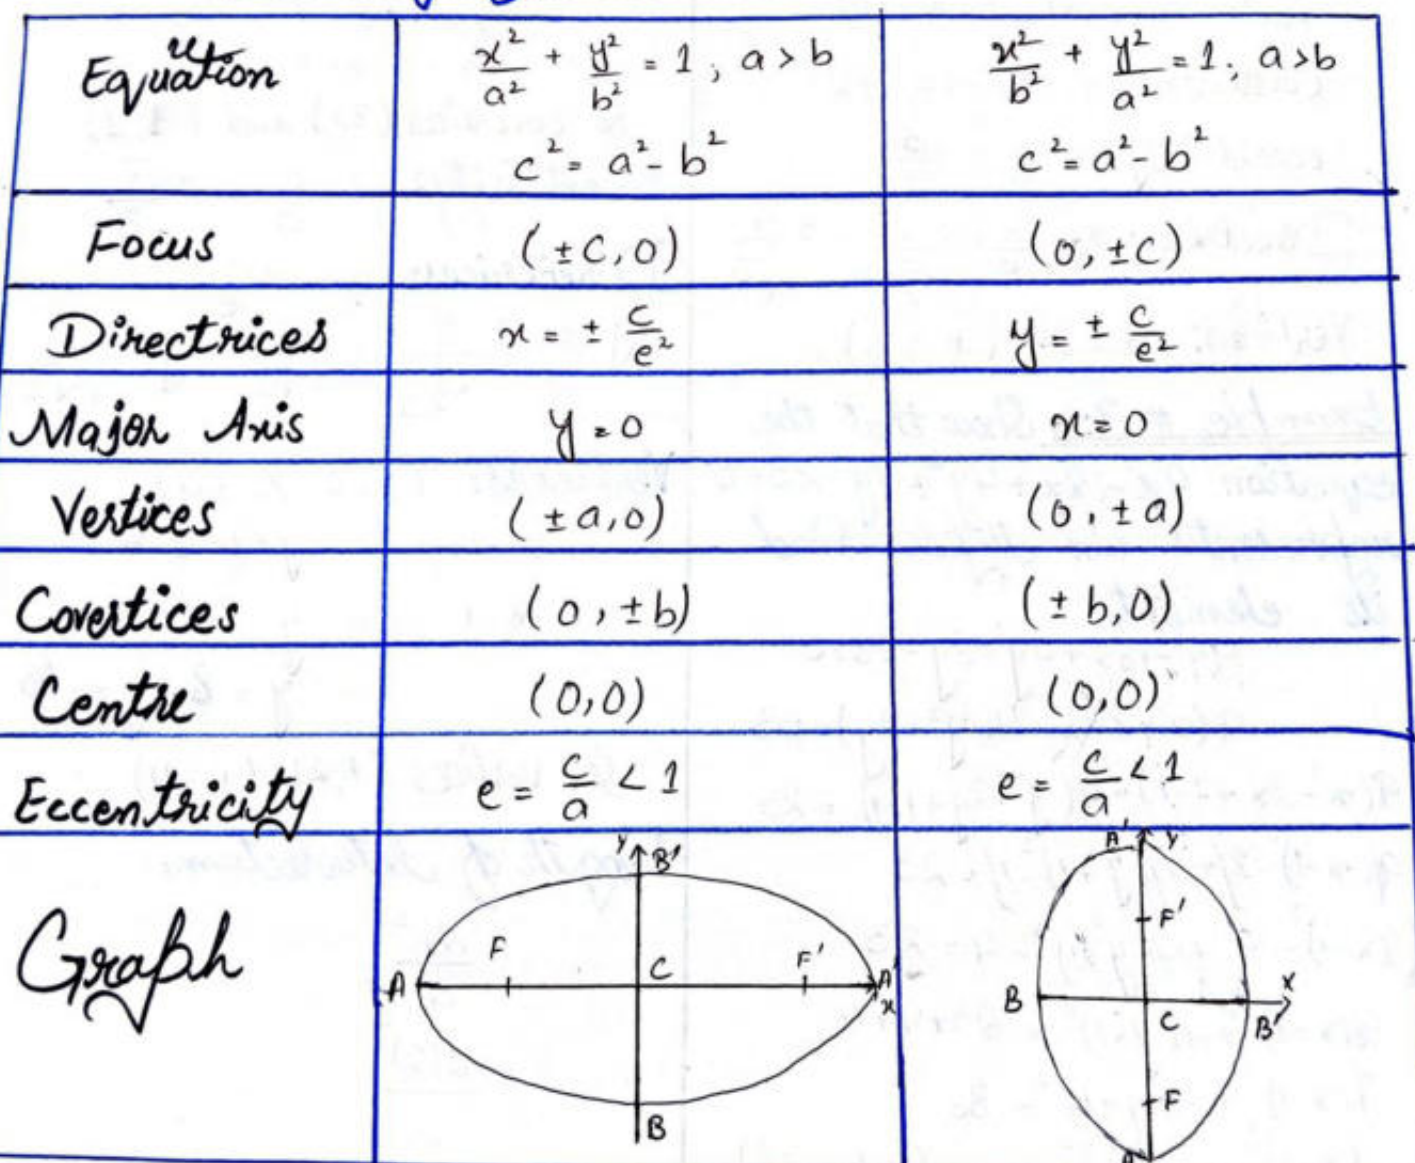 Equation x²/a² + y²/b² = 1, a > b x²/b² + y²/a² = 1, a > b
c² = a² - b² c² = a² - b²
Focus (±C, 0) (0, ±C)
Directrices x = ± c/e² y = ± c/e²
Major Axis y = 0 x = 0
Vertices (±a, 0) (0, ±a)
Covertices (0, ±b) (±b, 0)
Centre (0,0) (0,0)
Eccentricity e = c/a < 1 e = c/a < 1
Graph
Y B'
F C F'
A A'
x
B
A' Y
F'
B X
C B'
F
A